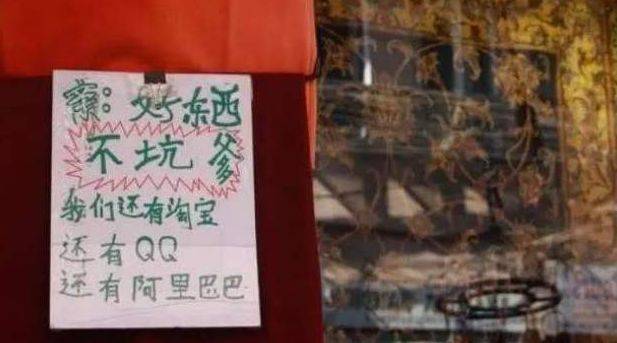 : 好东西
不坑爹
我们还有淘宝
还有QQ
还有阿里巴巴